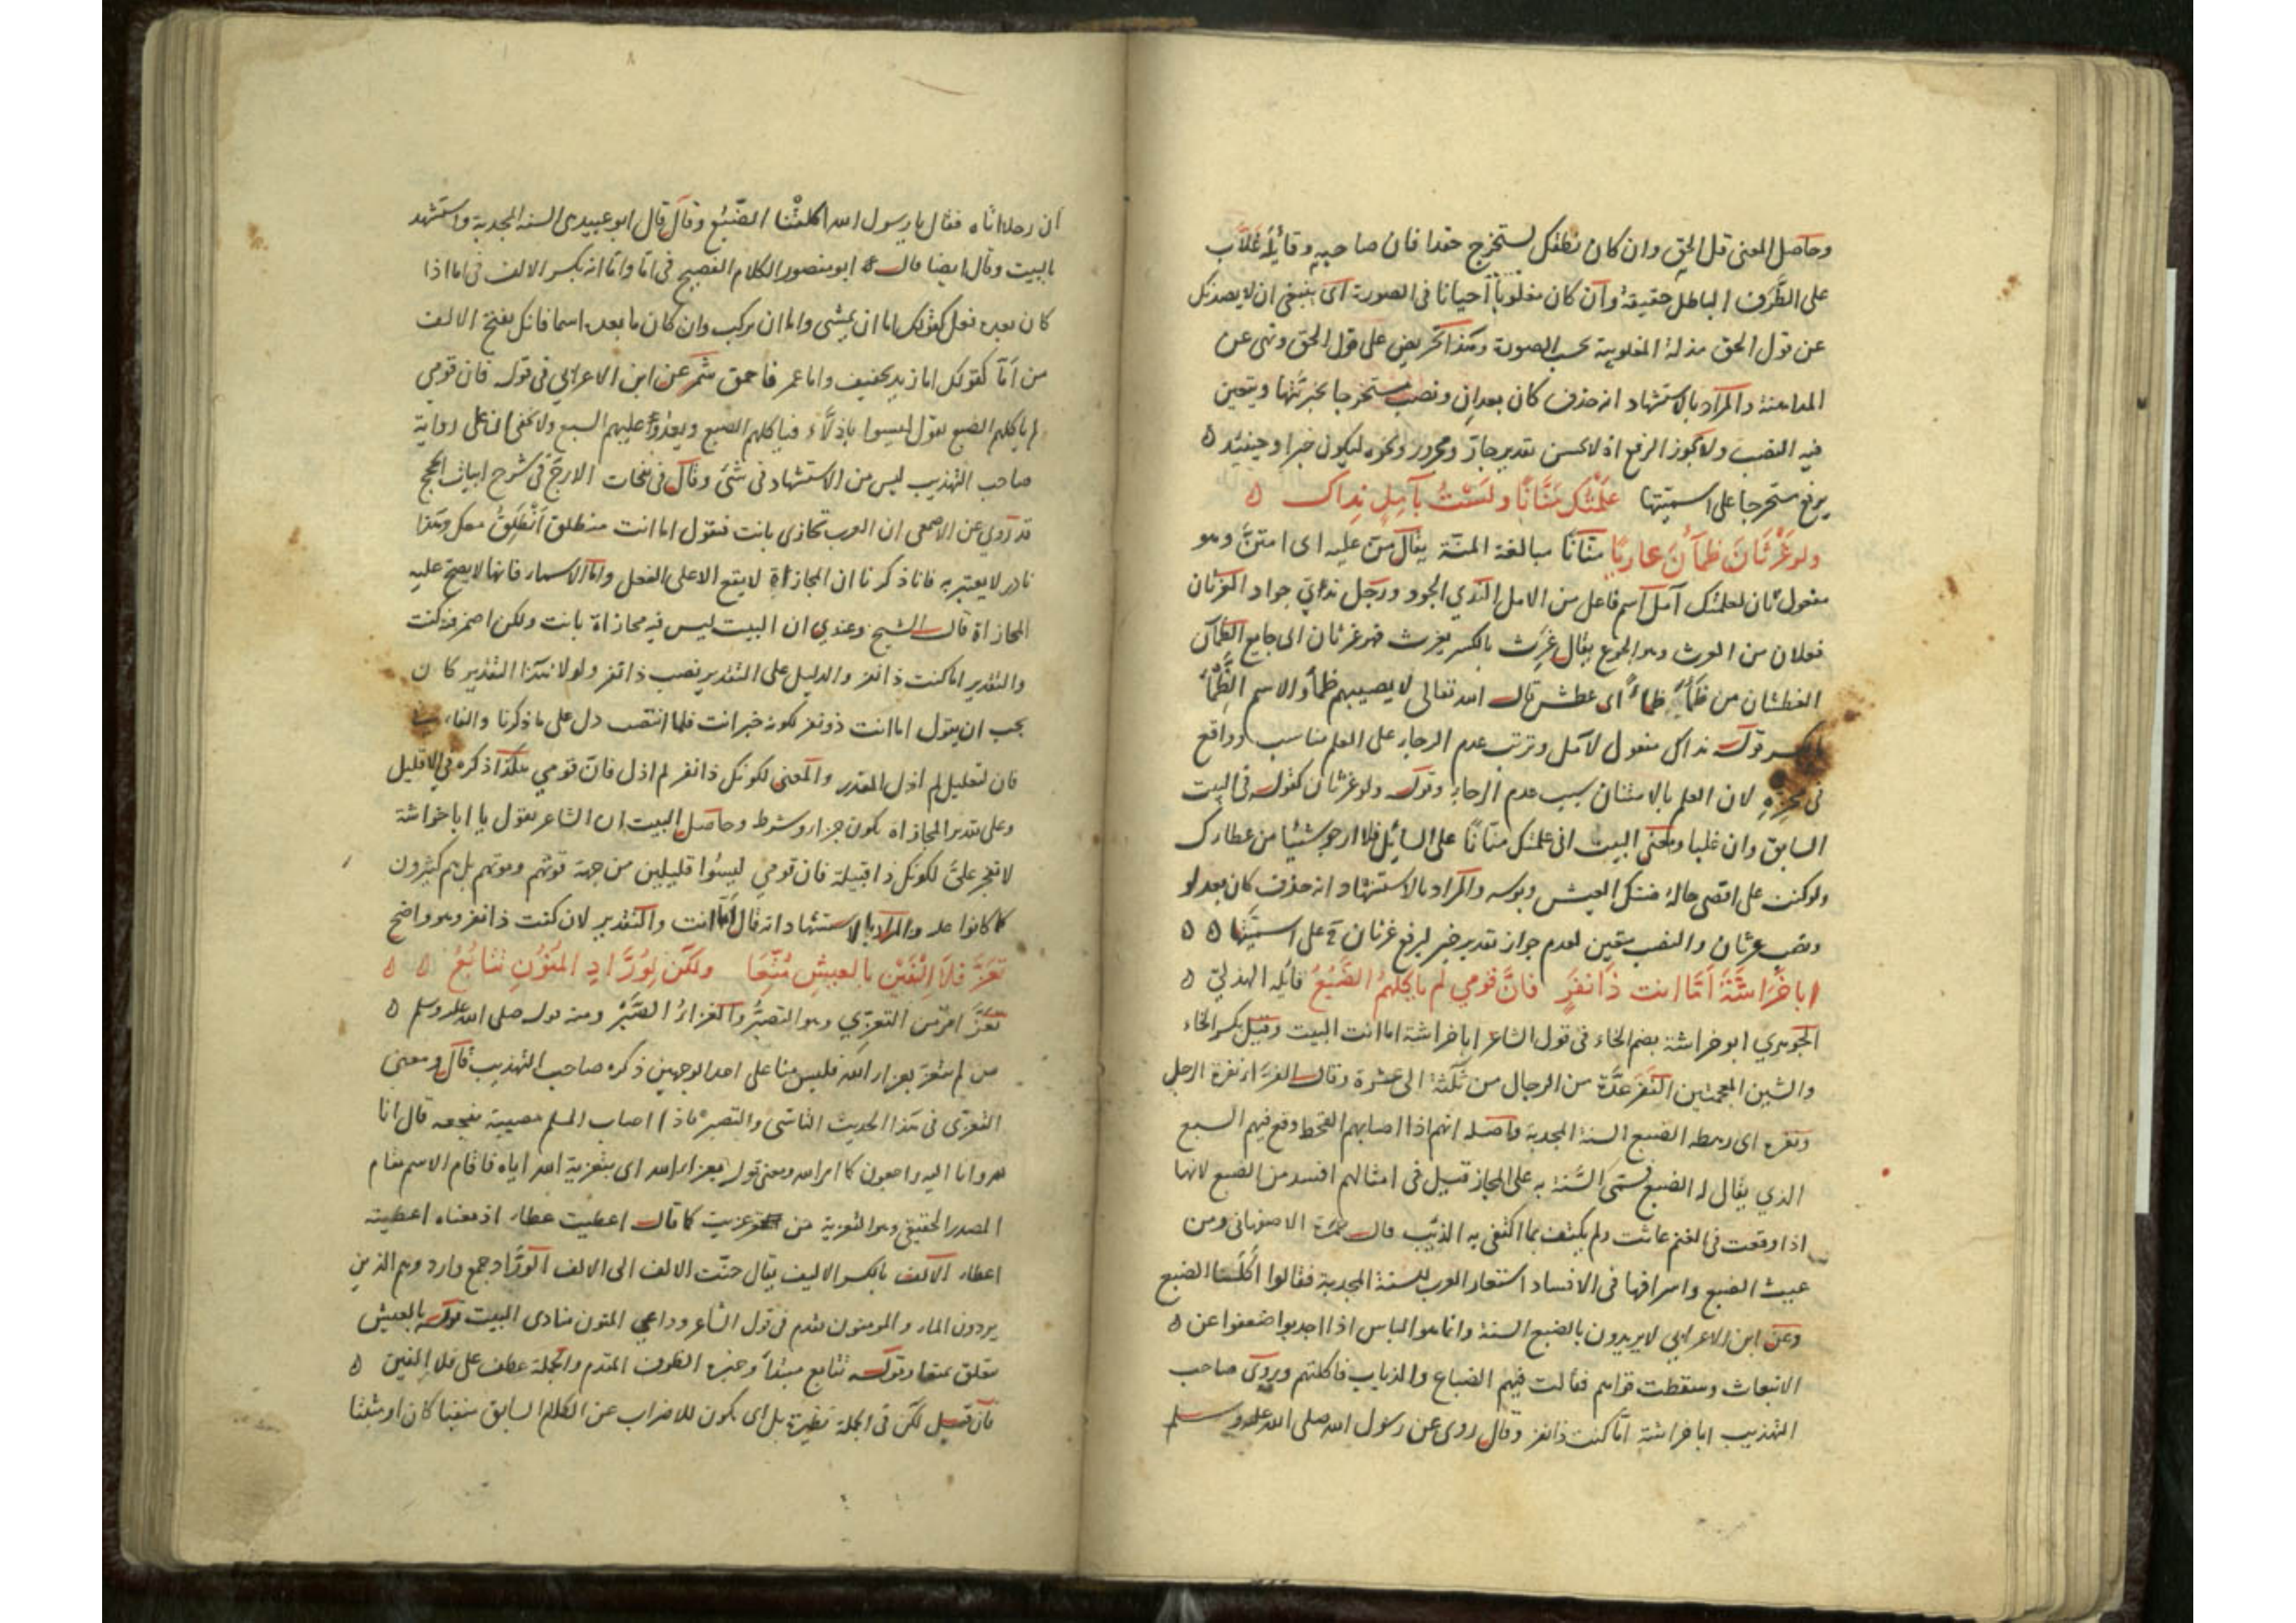 وحاصل المعنى قل الحق وان كان نطقك لستخرج حقدا فان صاحبه وقائله غلاب
على الطرف الباطل حقيقة وان كان مغلوبا احيانا في الصورة اى ينبغى ان لا يصدنك
عن قول الحق مذلة المغلوبية بحسب الصورة وهذا تحريض على قول الحق ونهى عن
المداهنة والمراد بالاستشهاد انه حذف كان بعد ان ونصب مستخرجا بخبريتها ويتعين
فيه النصب ولا يجوز الرفع اذ لا يحسن تقدير جار ومجرور ونحوه ليكون خبرا وحينئذ ه
يرفع مستخرجا على اسميتها عَلِمْتُكَ مَنَّانًا ولَسْتُ بآمِلٍ نداك ه
ولو غَرْثَانَ ظمآنَ عاريًا منانا مبالغة المنة يقال من عليه اى امتن وهو
مفعول ثان لعلمتك آمل اسم فاعل من الامل الندي الجود ورجل ندى جواد الغرثان
فعلان من الغرث وهو الجوع يقال غرث بالكسر يغرث فهو غرثان اى جايع الظمآن
العطشان من ظمأ ظمأ اى عطش قال الله تعالى لا يصيبهم ظمأ والاسم الظمأ
بالكسر قوله نداك مفعول لآمل وترتب عدم الرجاء على العلم مناسب وواقع
في لان العلم بالامتنان سبب عدم الرجاء وقوله ولو غرثان كقوله في البيت
السابق وان غلبا ومعنى البيت انى علمتك منانا على السائل فلا ارجو شيئا من عطاءك
ولو كنت على اقصى حالة ضنك العيش وبوسه والمراد بالاستشهاد انه حذف كان بعد لو
ونصب غرثان والنصب متعين لعدم جواز تقدير خبر ليرفع غرثان على اسميتها ه ه
ابا خُرَاشَةَ أمّا انت ذا نفرٍ فانّ قومي لم ياكلهمُ الضَّبُعُ قايله الهذلي ه
الجوهري ابو خراشة بضم الخاء في قول الشاعر ابا خراشة اما انت البيت وقيل بكسر الخاء
والشين المعجمتين النفر عدة من الرجال من ثلثة الى عشرة وقال الفراء نفرة الرجل
ونفره اى رهطه الضبع السنة المجدبة واصله انهم اذا اصابهم القحط وقع فيهم السبع
الذي يقال له الضبع فسمى السنة به على المجاز قيل في امثالهم افسد من الضبع لانها
اذا وقعت في الغنم عاثت ولم يكتف بما اكتفى به الذيب قال حمزة الاصفهاني ومن
عيث الضبع واسرافها في الافساد استعار العرب للسنة المجدبة فقالوا اكلتنا الضبع
وعن ابن الاعرابي لا يريدون بالضبع السنة وانما هو الناس اذا اجدبوا ضعفوا عن ه
الانبعاث وسقطت قواهم فعاثت فيهم الضباع والذياب فاكلتهم وروى صاحب
التهذيب ابا خراشة اما كنت ذا نفر وقال روى عن رسول الله صلى الله عليه وسلم
ان رجلا اتاه فقال يا رسول الله اكلتنا الضبع وقال قال ابو عبيد هى السنة المجدبة واستشهد
بالبيت وقال ايضا قال ابو منصور الكلام الفصيح في اما واما انه بكسر الالف في اما اذا
كان بعده فعل كقولك اما ان يمشى واما ان يركب وان كان ما بعده اسما فانك بفتح الالف
من اما كقولك اما زيد فحنيف واما عمر فاحمق شمر عن ابن الاعرابي في قوله فان قومي
لم ياكلهم الضبع يقول ليسوا باذلاء فياكلهم الضبع ويعدو عليهم السبع ولا يخفى ان على رواية
صاحب التهذيب ليس من الاستشهاد في شئ وقال في نفحات الارج في شرح ابيات الحجج
قد روي عن الاصمعى ان العرب تجازى بانت فتقول اما انت منطلق انطلق معك وهذا
نادر لا يعتبر به فانا ذكرنا ان المجازاة لا يقع الا على الفعل واما الاسماء فانها لا يصح عليه
المجازاة قال الشيخ وعندي ان البيت ليس فيه مجازاة بانت ولكن اضمر فيه كنت
والتقدير اما كنت ذا نفر والدليل على التقدير نصب ذا نفر ولولا هذا التقدير كان
يجب ان يقول اما انت ذو نفر لكونه خبر انت فلما انتصب دل على ما ذكرنا والفاء في
فان لتعليل لم اذل المقدر والمعنى لكونك ذا نفر لم اذل فان قومي هكذا ذكره في الاقليل
وعلى تقدير المجازاة يكون جزاء وشرط وحاصل البيت ان الشاعر يقول يا ابا خراشة
لا تفخر علىّ لكونك ذا قبيلة فان قومي ليسوا قليلين من جهة قوتهم وموتهم بل هم كثيرون
كما كانوا عليه والمراد بالاستشهاد انه قال اما انت والتقدير لان كنت ذا نفر وهو واضح
تَعَزَّ فلا إلْفَيْنِ بالعيشِ مُتِّعَا ولكن لِوُرَّادِ المَنُونِ تتابُعُ ه ه
تعز امر من التعزي وهو التصبر والعزاء الصبر ومنه قوله صلى الله عليه وسلم ه
من لم يتعز بعزاء الله فليس منا على احد الوجهين ذكره صاحب التهذيب قال ومعنى
التعزى في هذا الحديث التاسى والتصبر فاذا اصاب المسلم مصيبة تفجعه قال انا
لله وانا اليه راجعون كما امر الله ومعنى قوله بعزاء الله اى بتعزية الله اياه فاقام الاسم مقام
المصدر الحقيقي وهو التعزية من عزيت كما قال اعطيت عطاء اذ معناه اعطيته
اعطاء الالف بالكسر الاليف يقال حنت الالف الى الالف الوراد جمع وارد وهم الذين
يردون الماء والمنون تقدم في قول الشاعر وداعى المنون منادى البيت قوله بالعيش
متعلق بمتعا وقوله تتابع مبتدأ وخبره الظرف المقدم والجملة عطف على فلا الفين ه
فان قيل لكن في الجملة نظيرة بل اى يكون للاضراب عن الكلام السابق منفيا كان او مثبتا